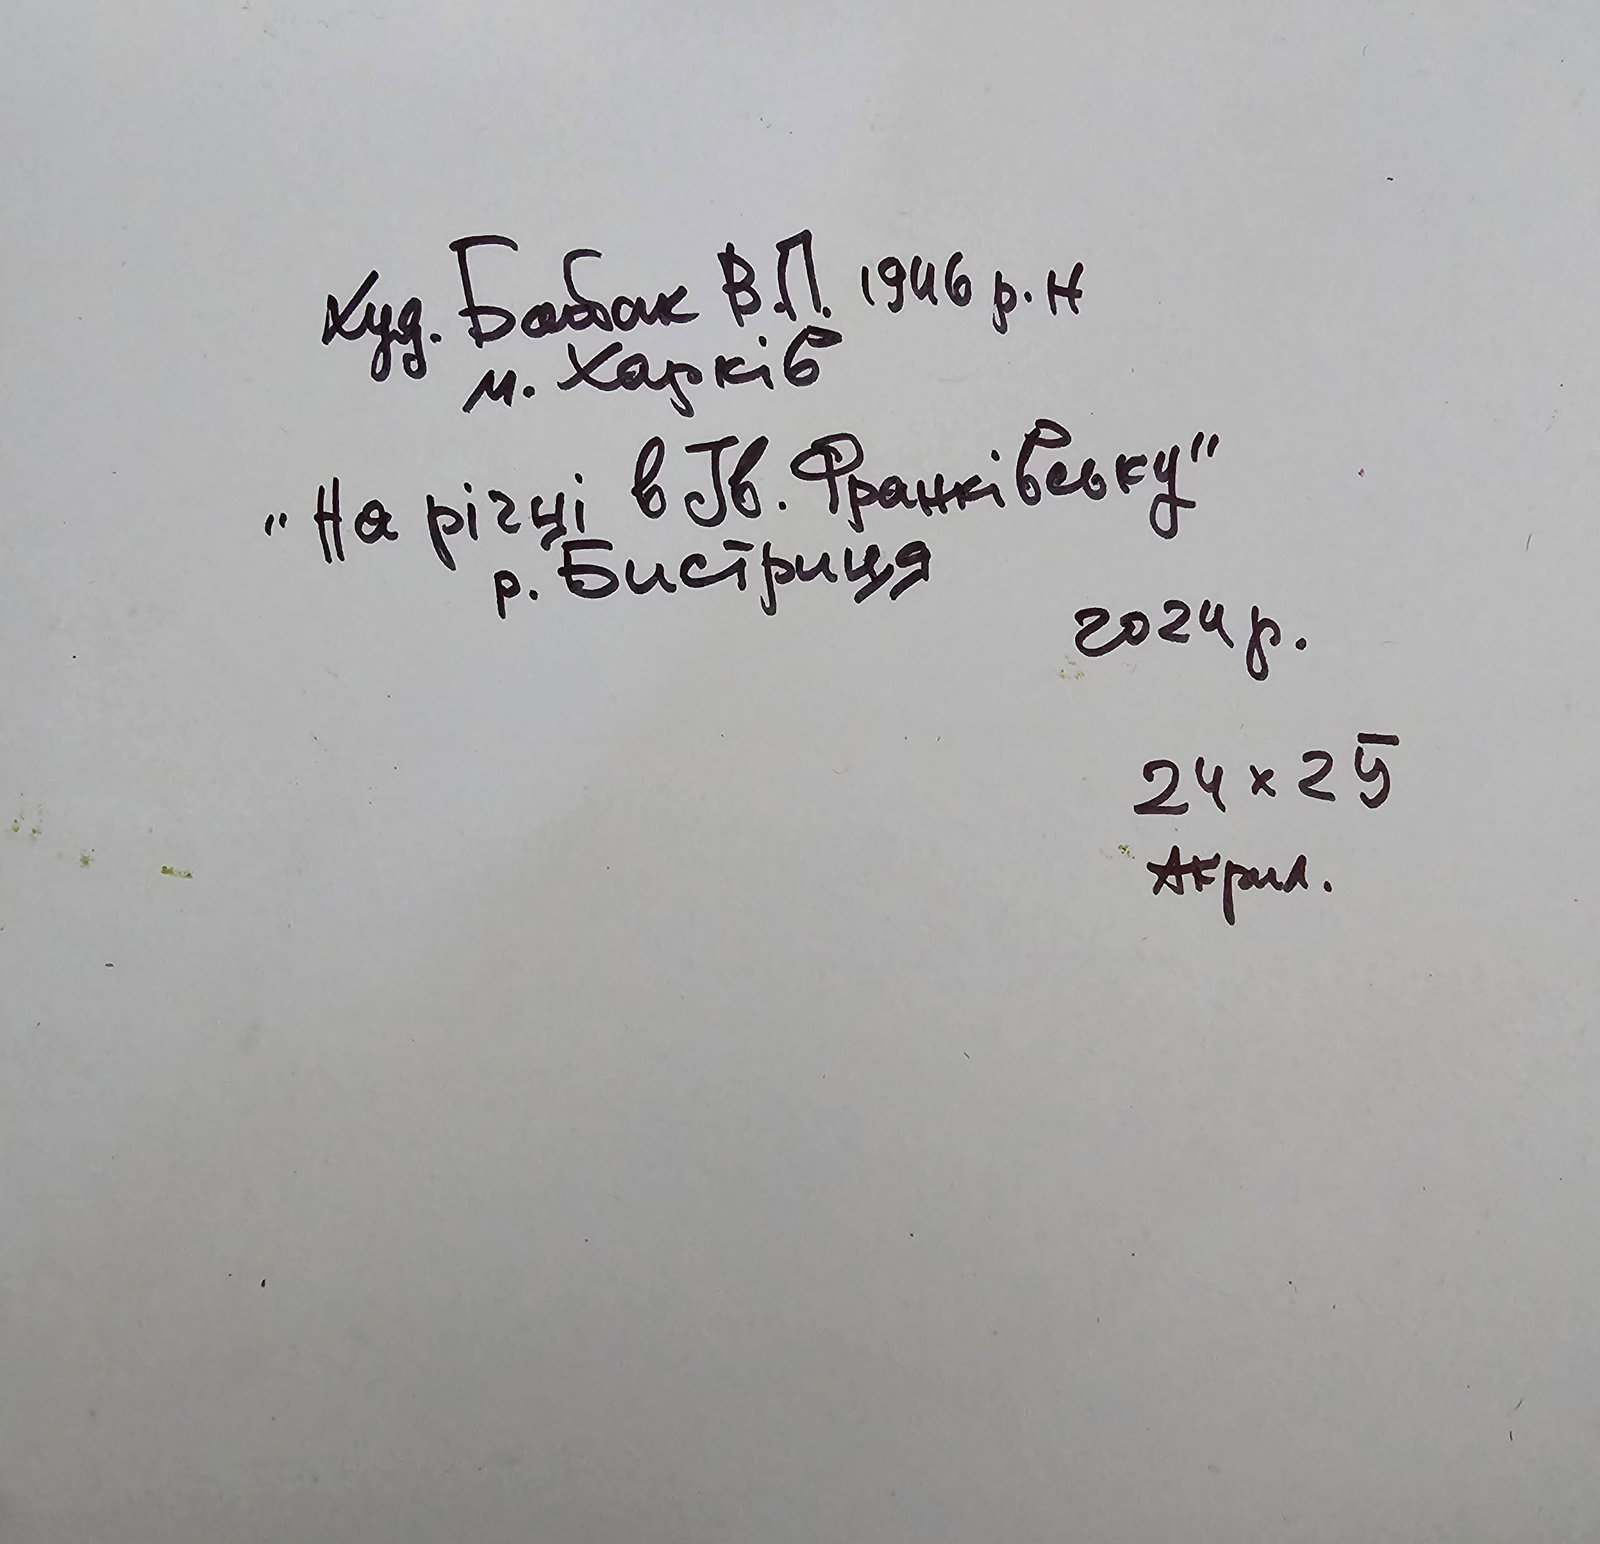 Худ. Бабак В.П. 1946 р.н
м. Харків
"На річці в Ів. Франківську"
р. Бистриця
2024р.
24 х 25
Акрил.